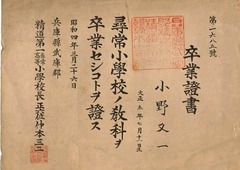 第一六八五號
卒業證書
小野又一
大正五年七月十一日生
尋常小學校ノ教科ヲ
卒業セシコトヲ證ス
昭和四年三月二十六日
兵庫縣武庫郡
精道第一尋常高等小學校長